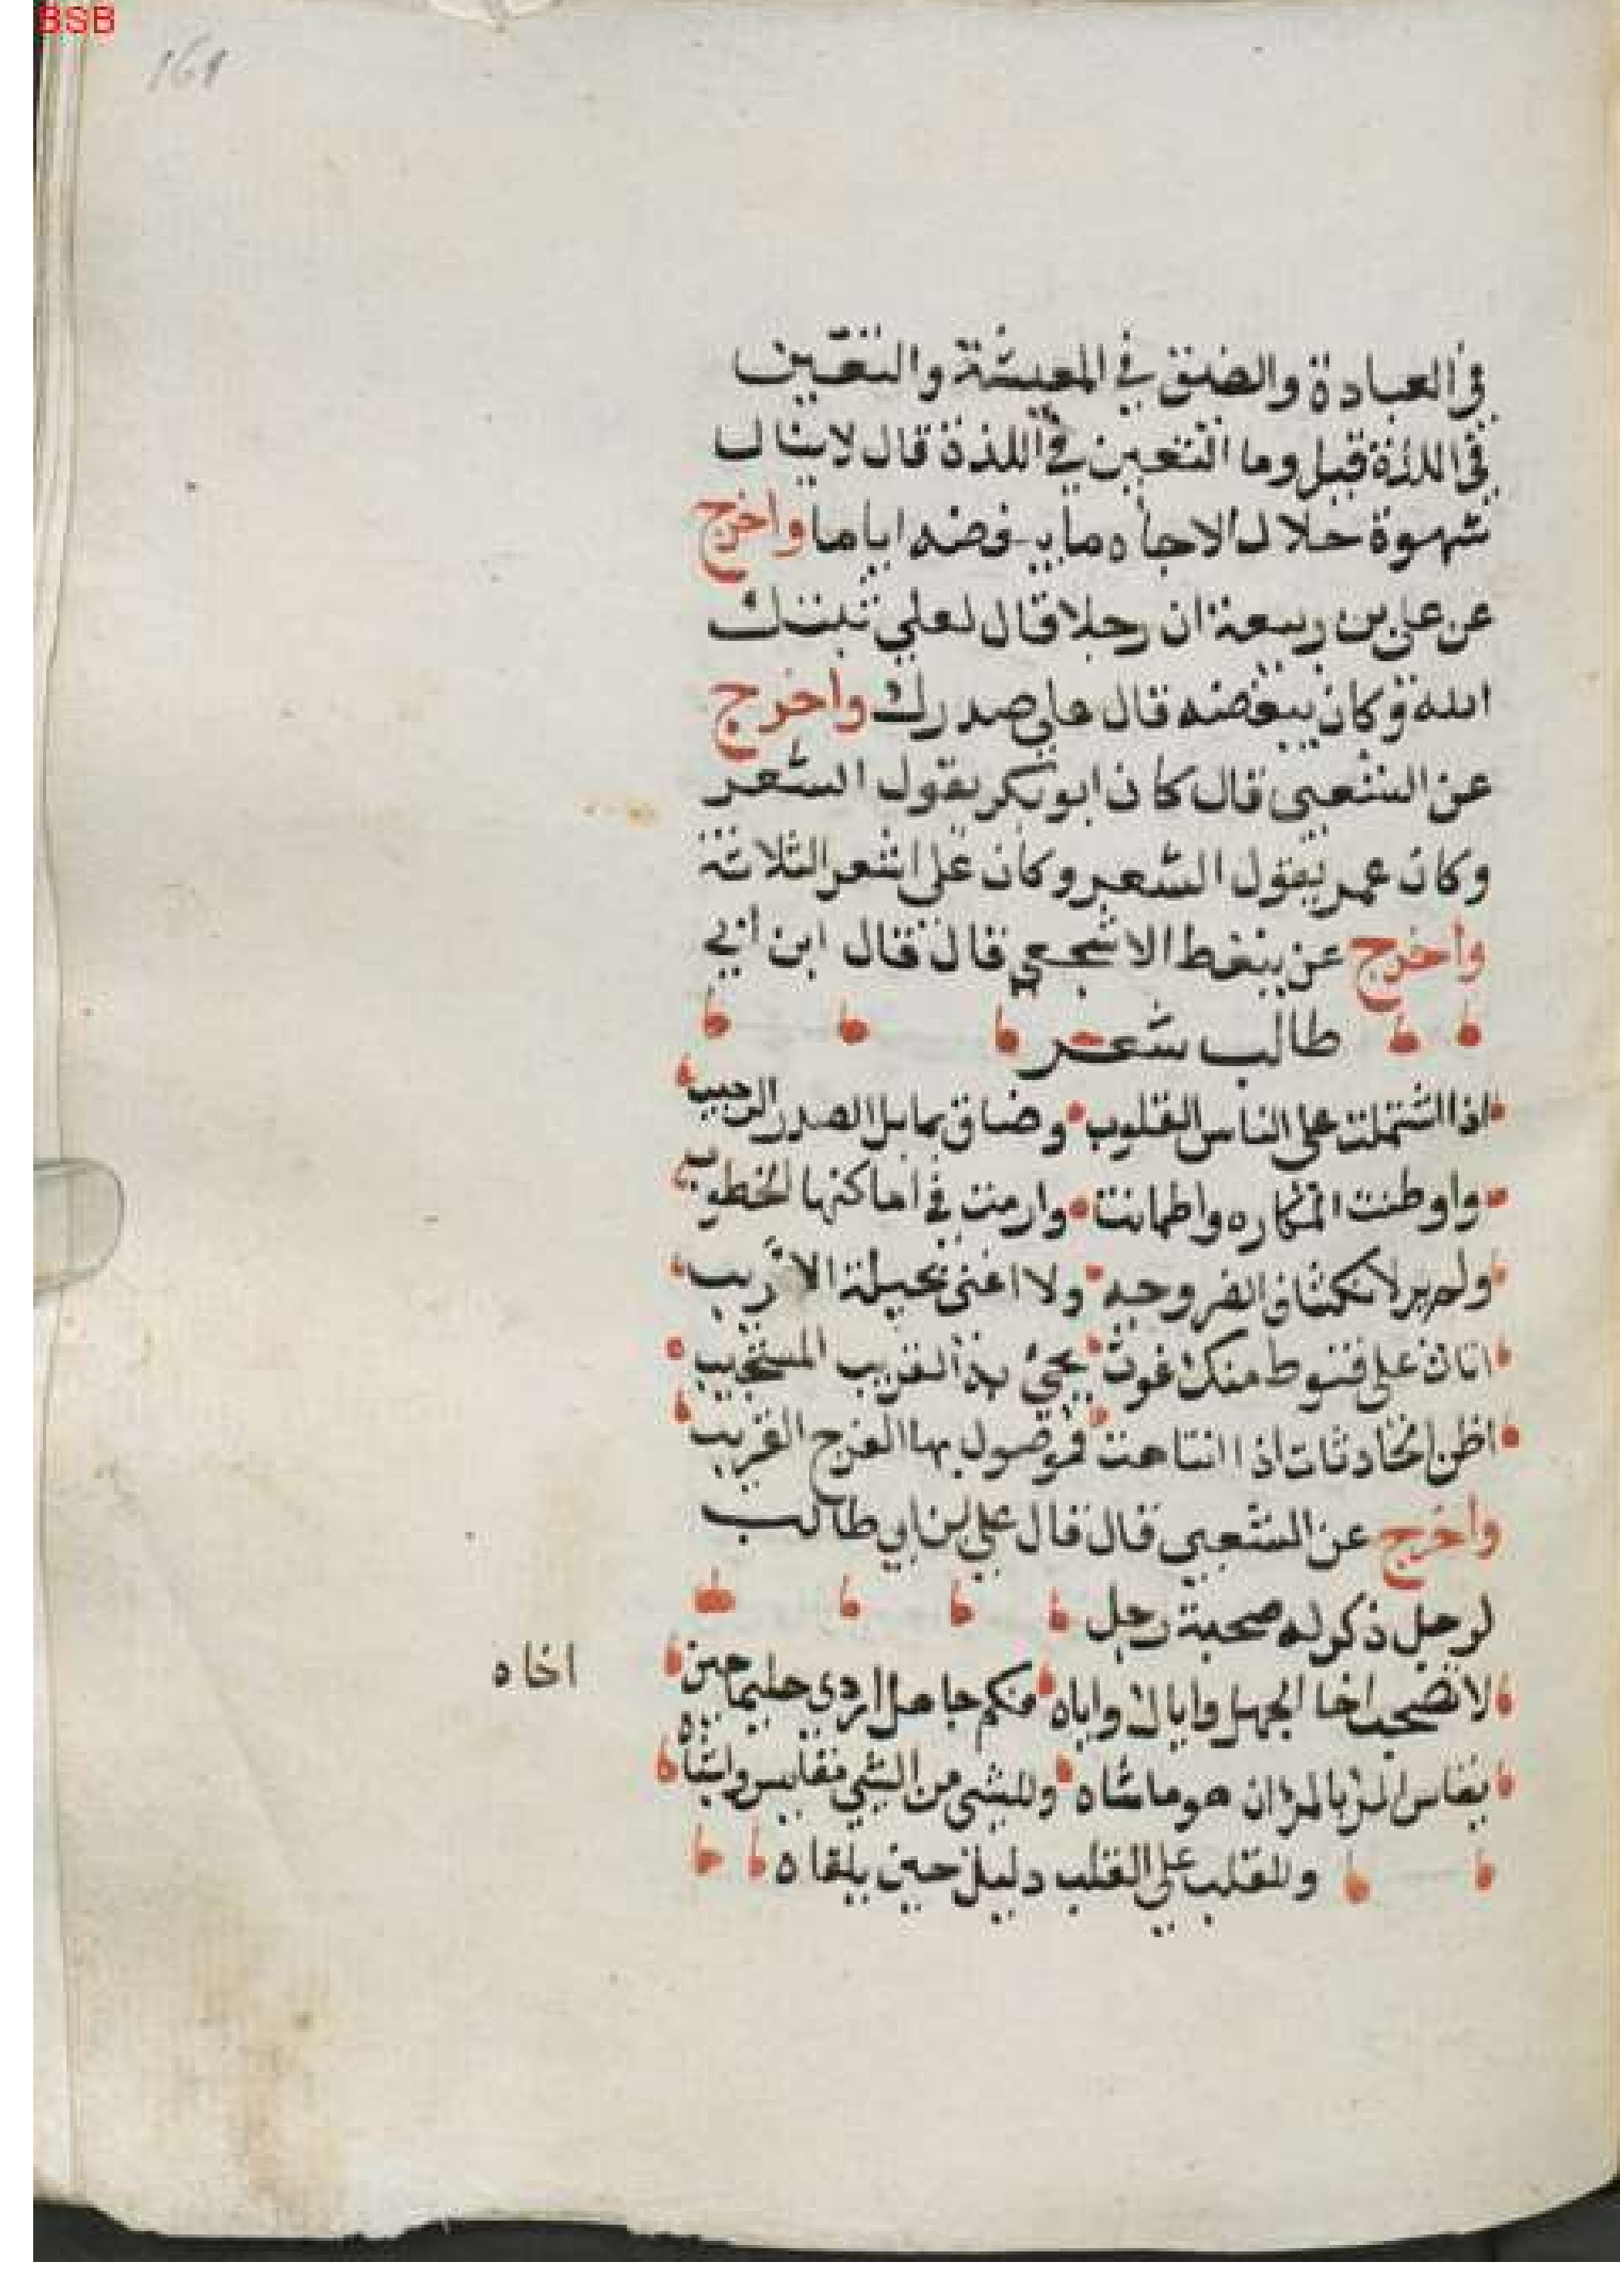 BSB
161
في العبادة والضيق في المعيشة والتعيين
في اللذة قيل وما التعيين في اللذة قال لا ينال
شهوة حلال الا جاه ما ينغصه اياها واخرج
عن علي بن ربيعة ان رجلا قال لعلي ثبتك
الله وكان يبغضه قال علي صدرك واخرج
عن الشعبي قال كان ابو بكر يقول الشعر
وكان عمر يقول الشعر وكان علي اشعر الثلاثة
واخرج عن الاشجعي قال قال ابن ابي
طالب شعر
اذا اشتملت على الناس القلوب وضاق بما بل الصدر الرحيب
واوطنت المكاره واطمانت وارست في اماكنها الخطوب
ولم ير لانكشاف الضر وجه ولا اغنى بحيلته الاريب
اتاك على قنوط منك غوث يجئ به القريب المستجيب
اظن الحادثات اذا انتاهت فموصول بها الفرج القريب
واخرج عن الشعبي قال قال علي بن ابي طالب
لرجل ذكر له صحبة رجل
لا تصحب اخا الجهل واياك واياه فكم جاهل اردى حليما حين
اخاه
يقاس المر بالمران هو ماشاه وللشئ من الشئ مقاييس واشباه
وللقلب على القلب دليل حين يلقاه